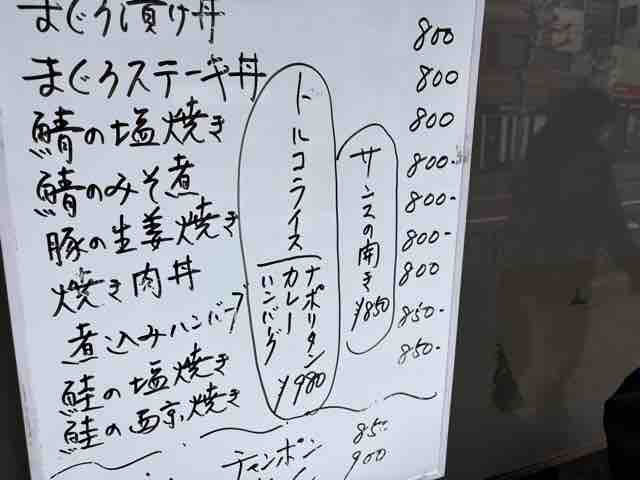 まぐろ漬け丼 800
まぐろステーキ丼 800
鯖の塩焼き 800
鯖のみそ煮 800-
豚の生姜焼き 800-
焼き肉丼 800-
煮込みハンバーグ 800
鮭の塩焼き 850-
鮭の西京焼き 850-
トルコライス
ナポリタン
カレー
ハンバーグ
¥980
サンマの開き
¥850
チャンポン 850
900